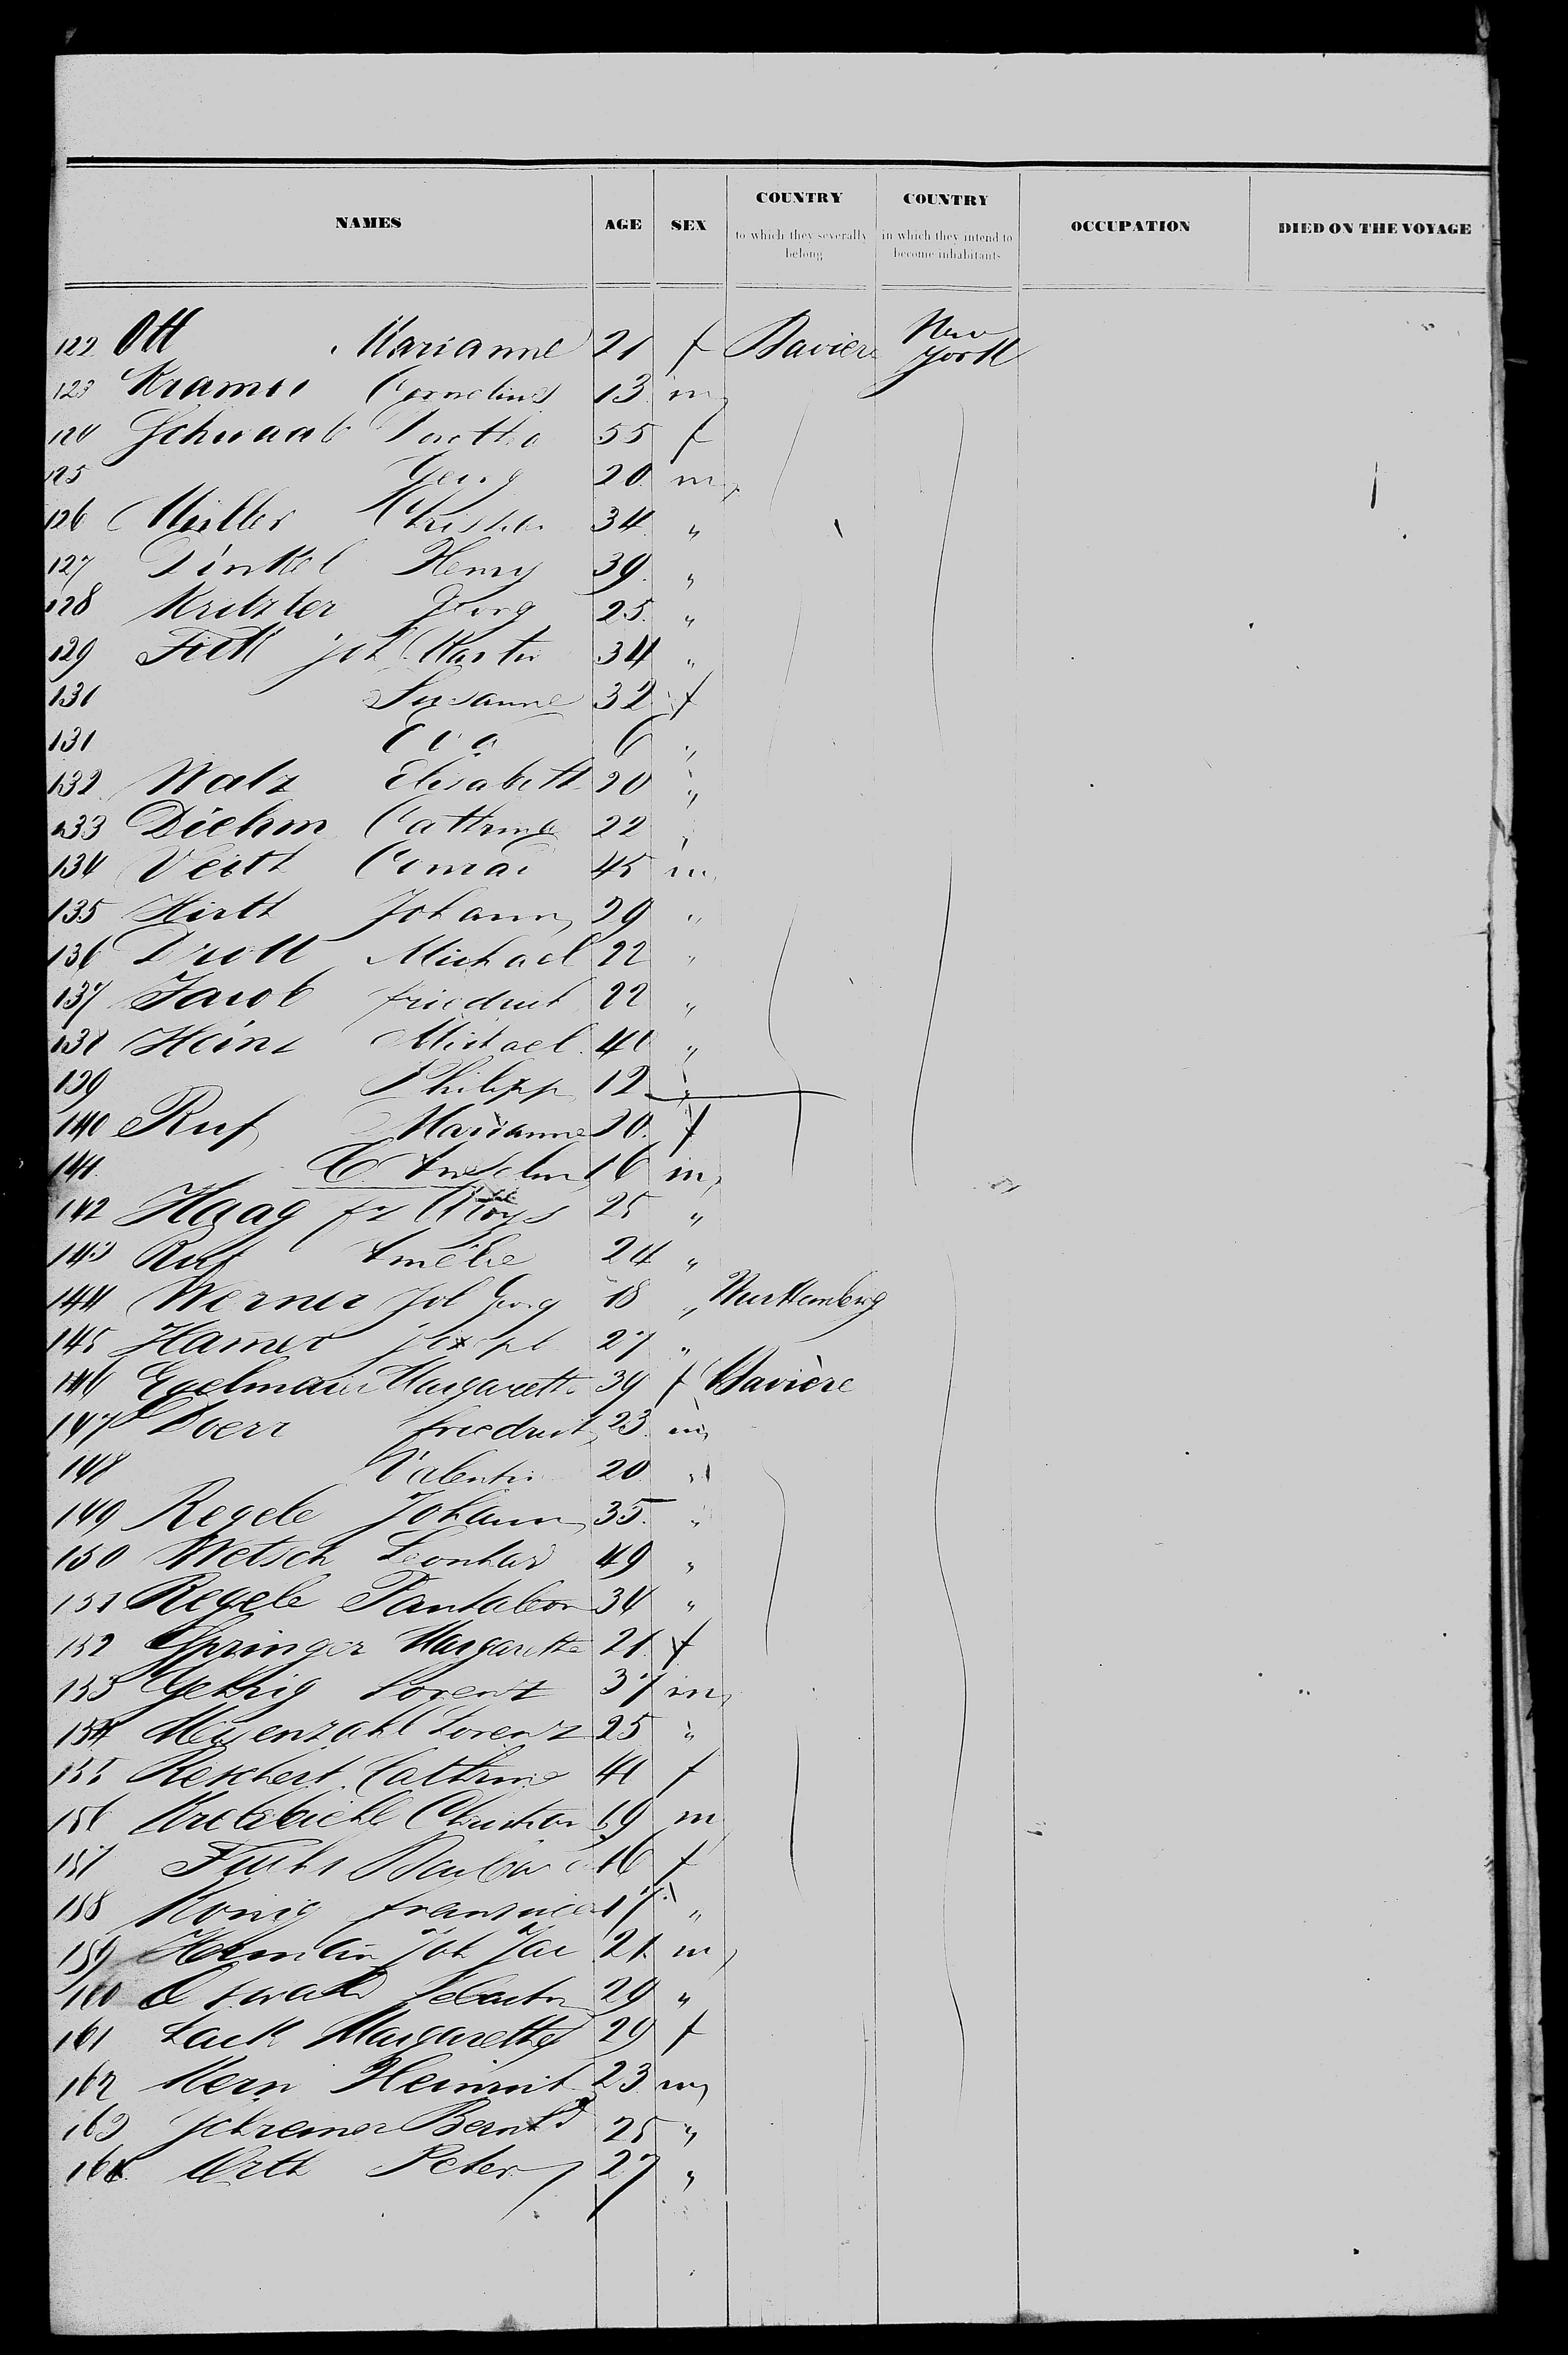 NAMES AGE SEX COUNTRY to which they severally belong COUNTRY in which they intend to become inhabitants OCCUPATION DIED ON THE VOYAGE
122 Ott Marianne 21 f Baviere New York
123 Kramer Cornelius 13 m
124 Schwaab Dorothea 55 f
125 Georg 20 m
126 Müller Christian 34 "
127 Dinkel Henry 39 "
128 Kritzler Georg 25 "
129 Fick Joh Martin 34 "
131 Susanne 32 f
131 Eva 6 "
132 Walz Elisabeth 20 "
133 Diehm Cathrine 22 "
134 Veith Conrad 45 m
135 Hirth Johann 29 "
136 Droll Michael 22 "
137 Jacob friedrich 22 "
138 Heinz Michael 40 "
139 Philipp 12 "
140 Ruf Marianne 20 f
141 Anselm 16 m
142 Haag fz Aloys 25 "
143 Ruf Amélie 24 "
144 Werner Joh Georg 18 " Wurttemberg
145 Hamer Joseph 27 "
146 Margareth 39 f Bavière
147 Doerr friedrich 23 m
148 Valentin 20 "
149 Regele Johann 35 "
150 Wetsch Leonhard 49 "
151 Regele Pantaleon 34 "
152 Springer Margarethe 21 f
153 Gehrig Lorenz 37 m
154 Meisenzahl Lorenz 25 "
155 Reichert Cathrine 41 f
156 Christian 19 m
157 Fuchs Barbara 16 f
158 König franzisca 17 "
159 Joh Jac 21 m
160 Oswald Sebastian 29 "
161 Lack Margarethe 29 f
162 Kern Heinrich 23 m
163 Schreiner Bernhd 25 "
164 Orth Peter 27 "